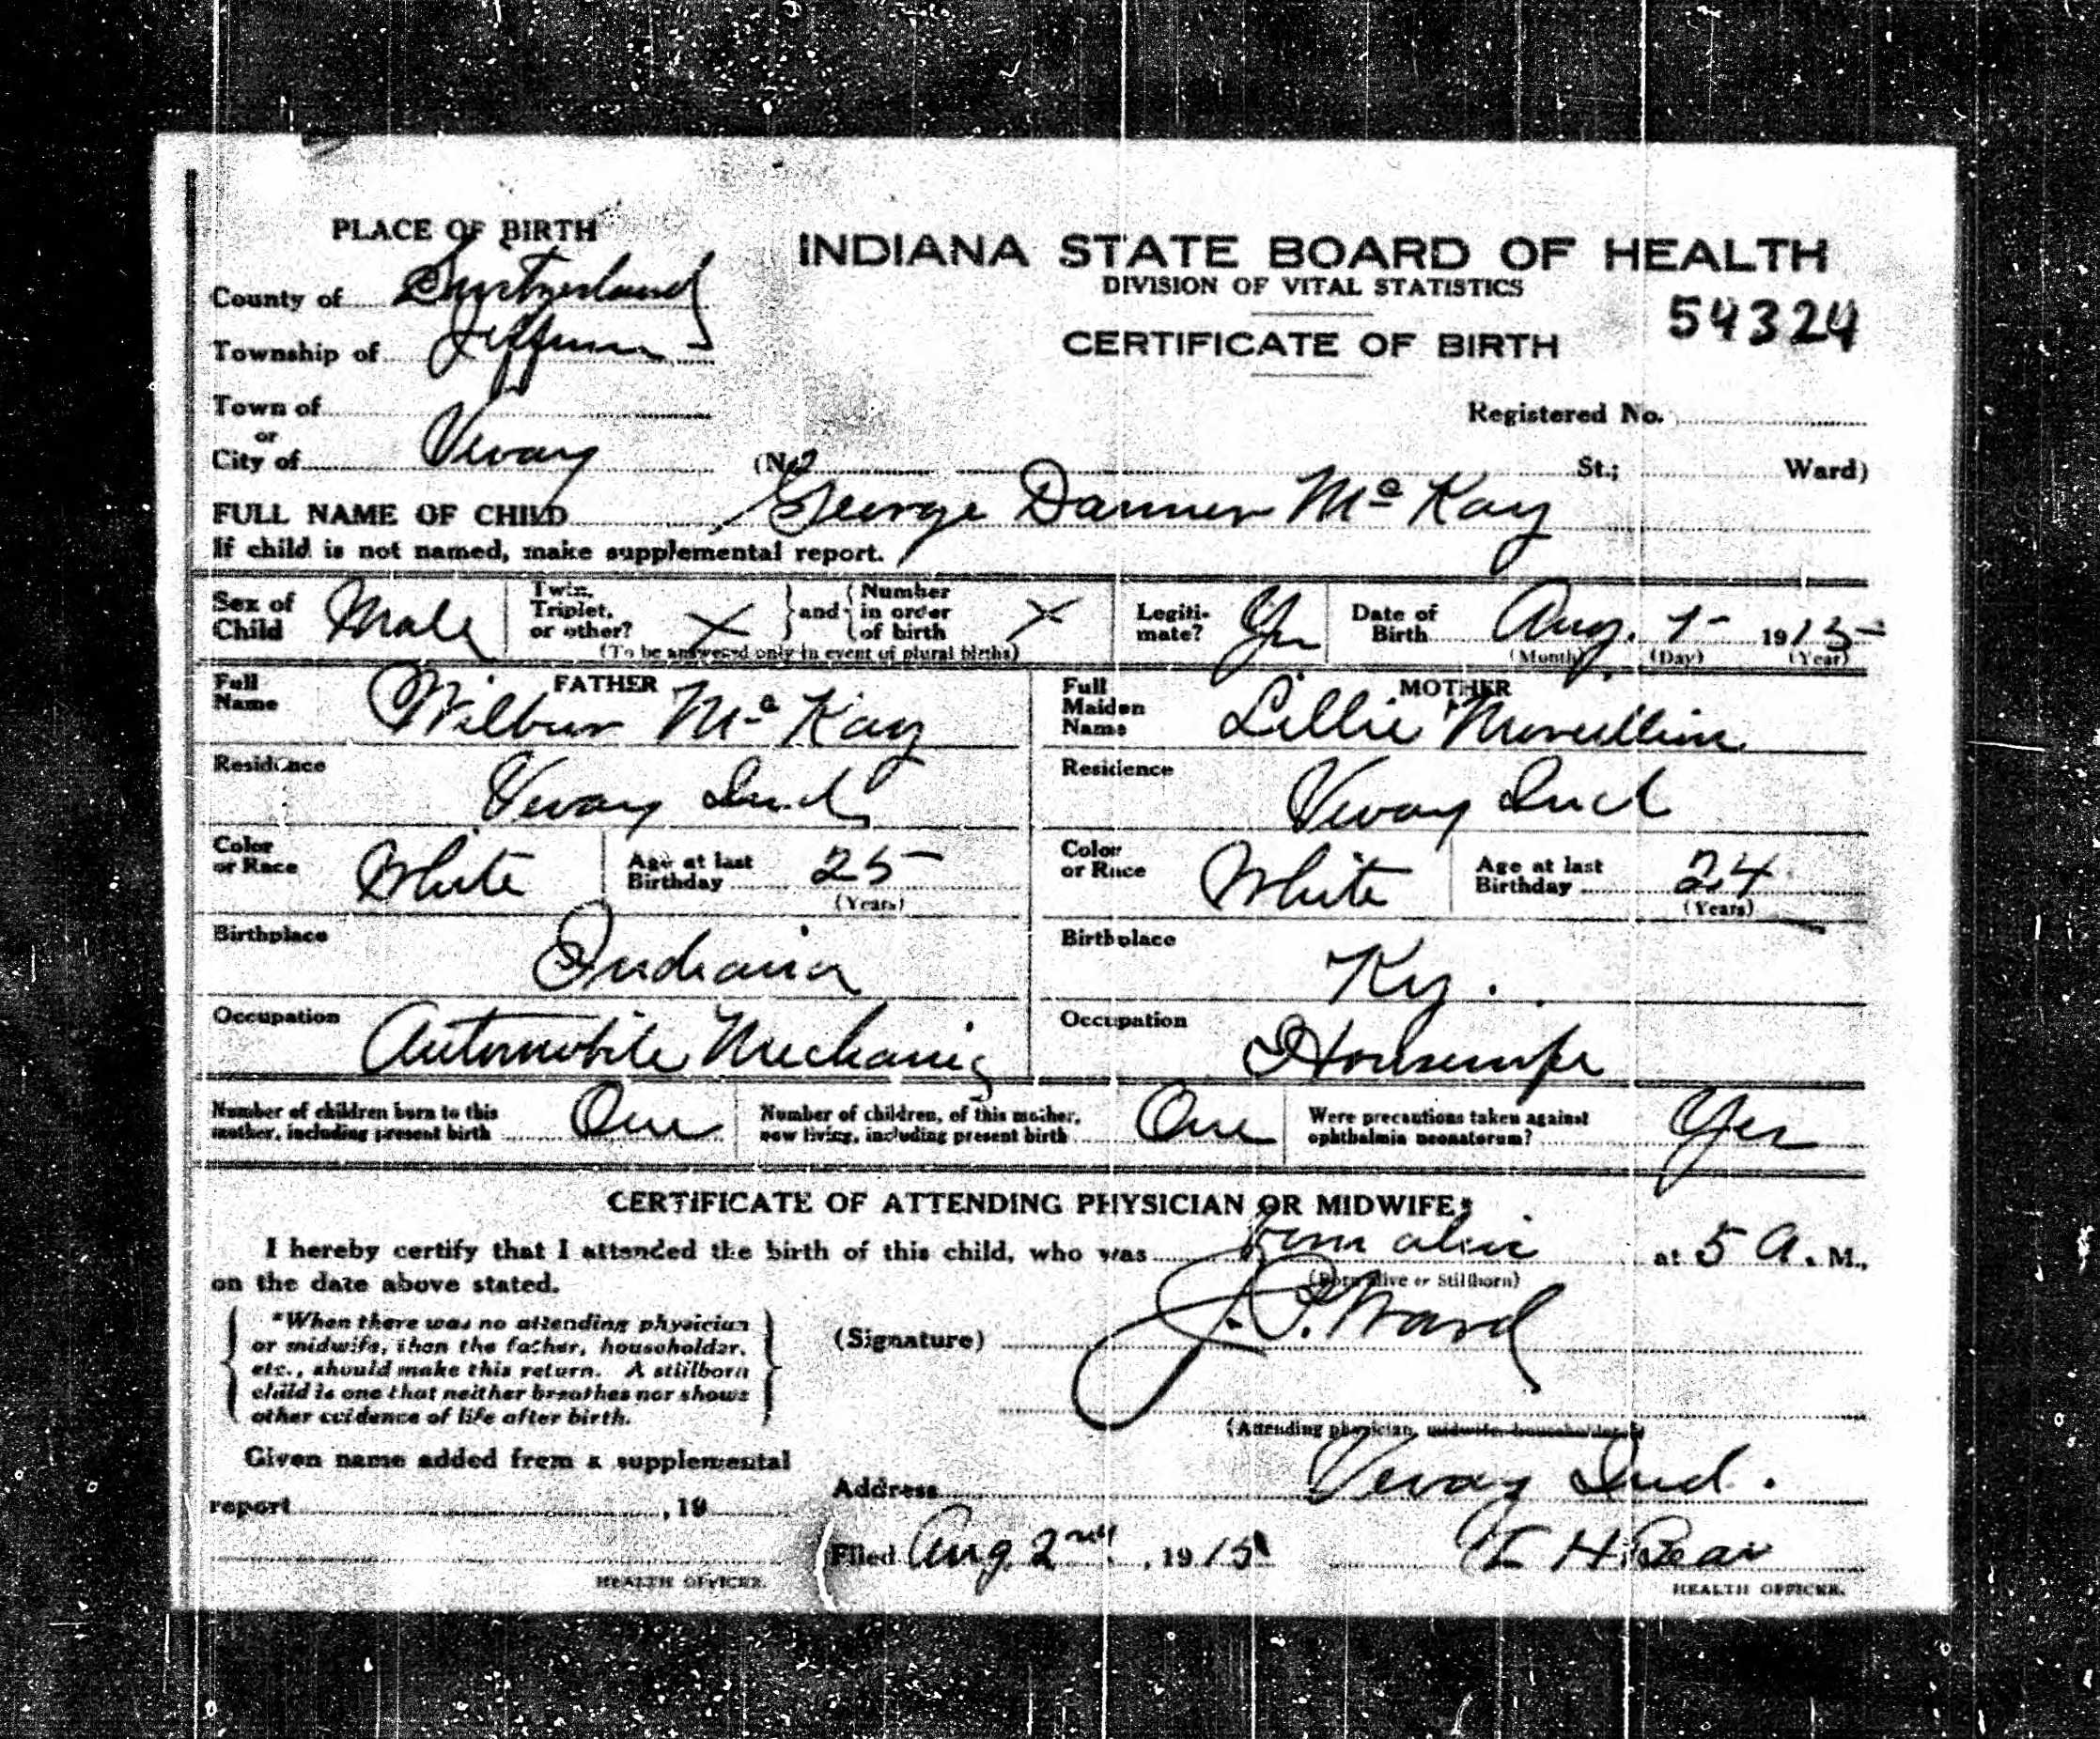 PLACE OF BIRTH
County of Switzerland
Township of Jefferson
Town of
or
City of Vevay
INDIANA STATE BOARD OF HEALTH
DIVISION OF VITAL STATISTICS
CERTIFICATE OF BIRTH
54324
Registered No.
(No St.; Ward)
FULL NAME OF CHILD George Danner Mc Kay
If child is not named, make supplemental report.
Sex of Child Male
Twin, Triplet, or other? X and Number in order of birth X
(To be answered only in event of plural births)
Legitimate? Yes
Date of Birth Aug. 1- 1915
(Month) (Day) (Year)
FATHER
Full Name Wilbur Mc Kay
Residence Vevay Ind
Color or Race White
Age at last Birthday 25
(Years)
Birthplace Indiana
Occupation Automobile Mechanic
MOTHER
Full Maiden Name Lillie
Residence Vevay Ind
Color or Race White
Age at last Birthday 24
(Years)
Birthplace Ky.
Occupation Housewife
Number of children born to this mother, including present birth One
Number of children, of this mother, now living, including present birth One
Were precautions taken against ophthalmia neonatorum? Yes
CERTIFICATE OF ATTENDING PHYSICIAN OR MIDWIFE*
I hereby certify that I attended the birth of this child, who was Born alive at 5 A. M.,
(Born alive or Stillborn)
on the date above stated.
*When there was no attending physician
or midwife, then the father, householder,
etc., should make this return. A stillborn
child is one that neither breathes nor shows
other evidence of life after birth.
(Signature) J. P. Ward
(Attending physician, midwife, householder)
Given name added from a supplemental
report , 19
HEALTH OFFICER.
Address Vevay Ind.
Filed Aug 2nd, 1915 H Bear
HEALTH OFFICER.